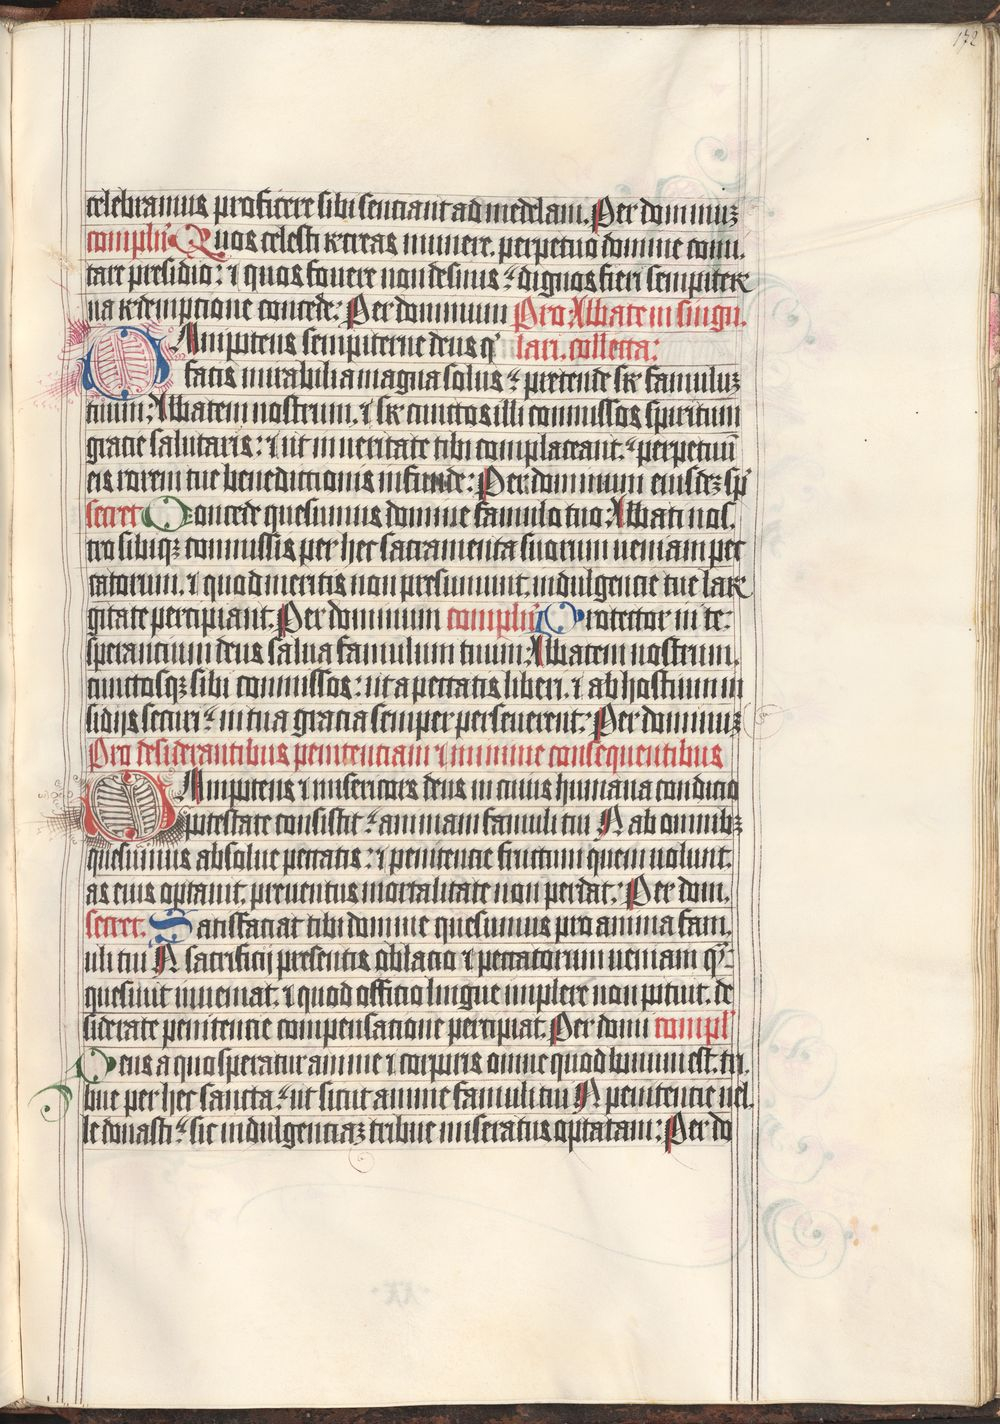 172
celebramus proficere sibi sentiant ad medelam. Per dominuꝫ
complň Quos celesti recreas munere. perpetuo domine comi⸗
tare presidio: ⁊ quos fouere non desinis ⁊ dignos fieri sempiter
na redemptione concede: Per dominum Pro Abbatem singu⸗
Omnipotens sempiterne deus q' lari. collecta:
facis mirabilia magna solus ⁊ pretende sr famuluꝫ
tuum: Abbatem nostrum. ⁊ sr cunctos illi commissos spiritum
gracie salutaris: ⁊ ut in ueritate tibi complaceant. ⁊ perpetuū
eis rorem tue benedictionis infunde: Per dominum eiusdeꝫ sp̄
secret Concede quesumus domine famulo tuo: Abbati nos⸗
tro sibiqꝫ commissis per hec sacramenta suorum ueniam pec
catorum. ⁊ quod meritis non presumunt. indulgencie tue lar
gitate percipiant. Per dominum complň Protector in te:
sperancium deus salua famulum tuum: Abbatem nostrum.
cunctosqꝫ sibi commissos: ut a peccatis liberi. ⁊ ab hostium in
sidijs securi ⁊ in tua gracia semper perseuerent: Per dominuꝫ
Pro desiderantibus penitenciam ⁊ minime consequentibus
Omnipotens ⁊ misericors deus in cuius humana condicio
potestate consistit ⁊ animam famuli tui N ab omnibꝫ
quesumus absolue peccatis: ⁊ penitencie fructum quem uolunt⸗
as eius optauit. preuentus mortalitate non perdat: Per dom.
secret. Satisfaciat tibi domine quesumus pro anima fam⸗
uli tui N sacrificij presentis oblacio ⁊ peccatorum ueniam q̄:
quesiuit inueniat. ⁊ quod officio lingue implere non potuit. de
siderate penitencie compensatione percipiat. Per domi compl'
Deus a quo speratur anime ⁊ corporis omne quod bonum est. tri⸗
bue per hec sancta ⁊ ut sicut anime famuli tui N penitencie uel⸗
le donasti ⁊ sic indulgenciaꝫ tribue miseratus optatam: Per do